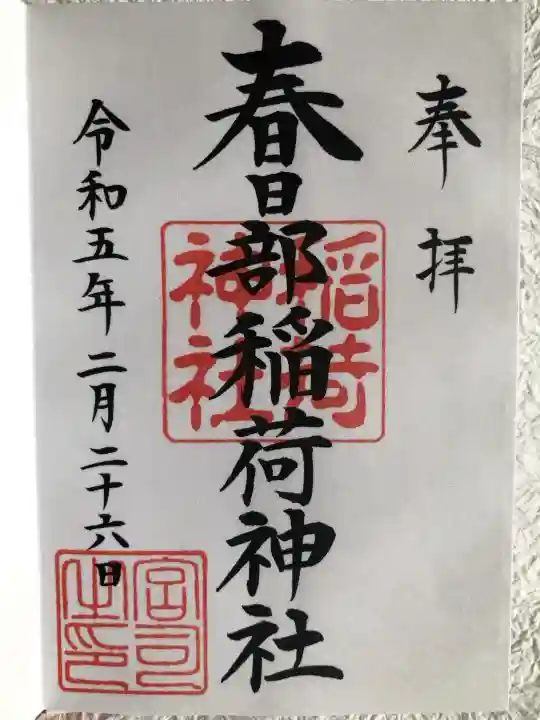 奉拝
春日部稲荷神社
神社
令和五年二月二十六日
宮司之印